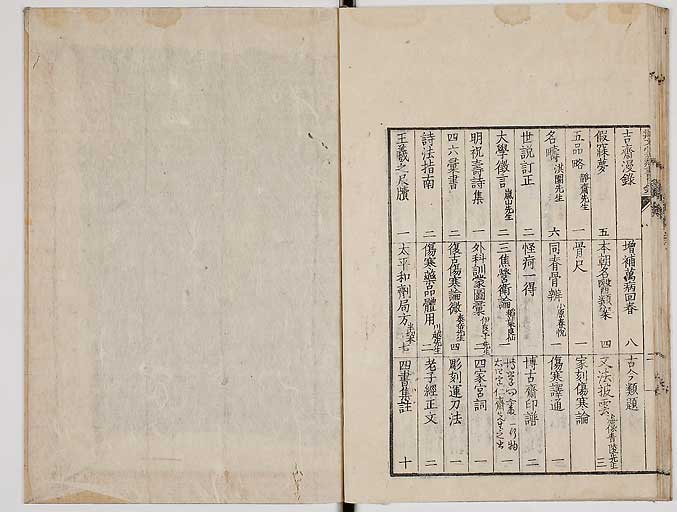 吉齋漫錄
增補萬病回春 八
古今類題
假寐夢 五
本朝名醫類案 四
文法披雲 三
五品略 靜齋先生 一
骨尺 一
家刻傷寒論
名疇 淇園先生 六
同春骨辨 小原春悅 一
傷寒譯通 一
世說訂正 二
怪痾一得 二
博古齋印譜 二
大學徵言 嵐山先生 二
三焦營衛論 一
明祝壽詩集 一
外科訓蒙圖彙 二
四家宮詞 一
四六彙書 二
復古傷寒論徵 四
彫刻運刀法 一
詩法指南 二
傷寒藥品體用 川越先生 二
老子經正文 二
王羲之尺牘 一
太平和劑局方 七
四書集註 十